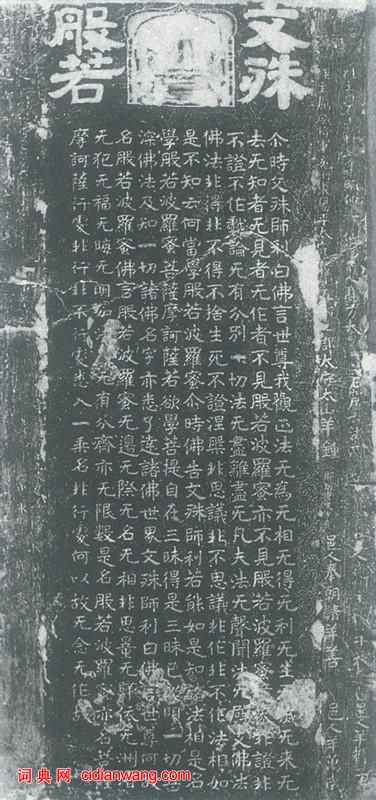 文殊
般若
尒時文殊師利白佛言世尊我觀正法无為无相无得无利无生无滅无來无
去无知者无見者无作者不見般若波羅蜜亦不見般若波羅蜜境界非證非
不證不作戲論无有分別一切法无盡離盡无凡夫法无聲聞法无辟支佛法
佛法非得非不得不捨生死不證涅槃非思議非不思議非作非不作法相如
是不知云何當學般若波羅蜜尒時佛告文殊師利若能如是知諸法相是名
學般若波羅蜜菩薩摩訶薩若欲學菩提自在三昧得是三昧已照明一切甚
深佛法及知一切諸佛名字亦悉了達諸佛世界文殊師利白佛言世尊何故
名般若波羅蜜佛言般若波羅蜜无邊无際无名无相非思量无歸依无洲渚
无犯无福无晦无明如无有分齊亦无限數是名般若波羅蜜亦名菩薩
摩訶薩行處非行非不行處悉入一乘名非行處何以故无念无作故
郎太守太山羊鍾
邑人奉朝請羊善
词典网 cidianwang.com